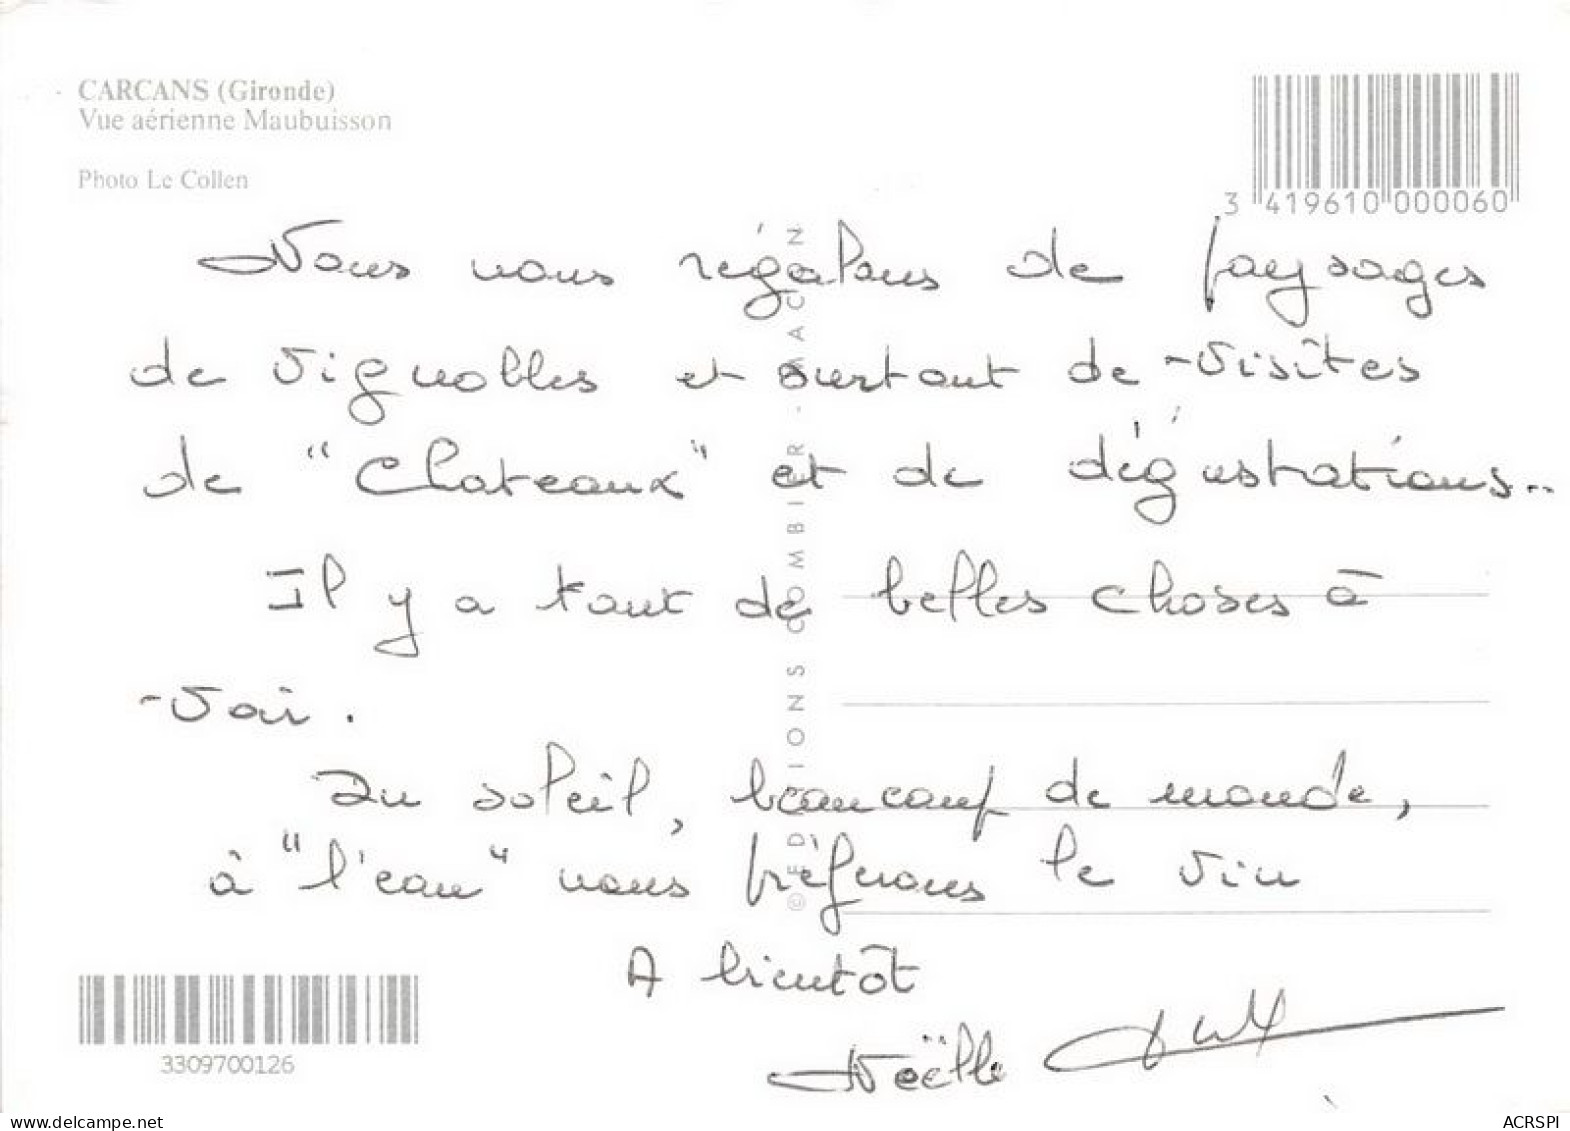 CARCANS (Gironde)
Vue aérienne Maubuisson
Photo Le Collen
3 419610 000060
Nous nous régalons de paysages
de vignobles et surtout de visites
de "Chateaux" et de dégustations..
Il y a tant de belles choses à
voir.
Du soleil, beaucoup de monde,
à "l'eau" nous préférons le vin
A bientôt
Noëlle
© EDITIONS COMBIER - MACON
3309700126
www.delcampe.net
ACRSPI